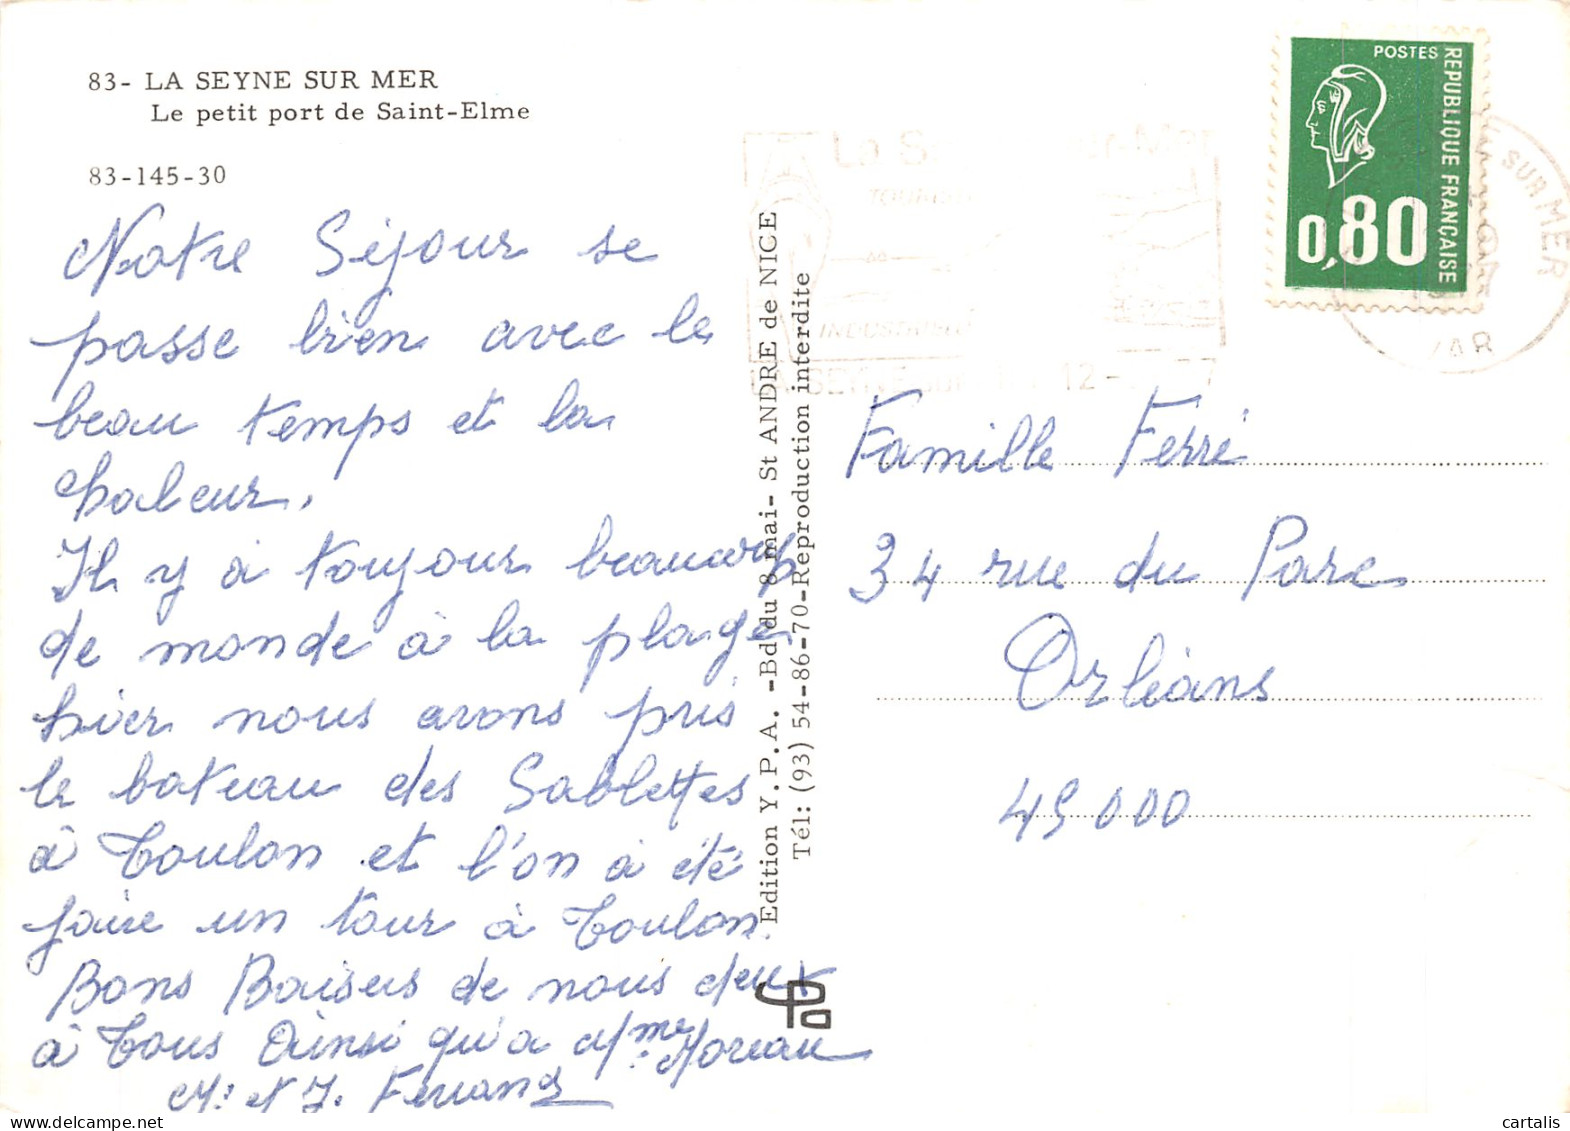 83- LA SEYNE SUR MER
Le petit port de Saint-Elme
83-145-30
Notre Séjour se
passe bien avec le
beau temps et la
chaleur.
Il y à toujour beaucoup
de monde à la plage,
hier nous avons pris
le bateau des Sablettes
à Toulon et l'on à été
faire un tour à Toulon.
Bons Baisers de nous deux
à Tous Ainsi qu'a Mme Moreau
M. et J.
Edition Y.P.A. -Bd du 8 mai- St ANDRE de NICE
Tél: (93) 54-86-70-Reproduction interdite
POSTES
REPUBLIQUE FRANÇAISE
0,80
SUR MER
VAR
La S
INDUSTRIE
LA SEYNE sur
12-
Famille Ferré
34 rue du Parc
Orléans
45000
cartalis